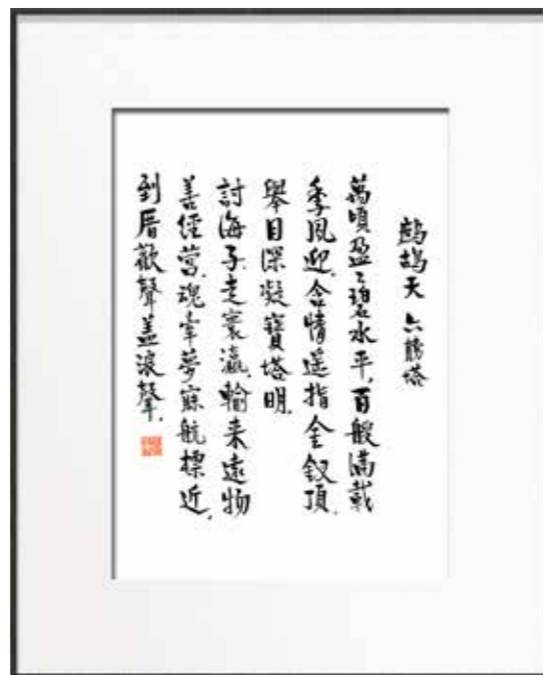 鹧鸪天 六勝塔
萬頃盈々碧水平,百艘滿載
季風迎,含情遥指金釵頂,
舉目深凝寶塔明.
討海子,走寰瀛,輸来遠物
善經营,魂牵夢寐航標近,
到厝歡聲盖浪聲.